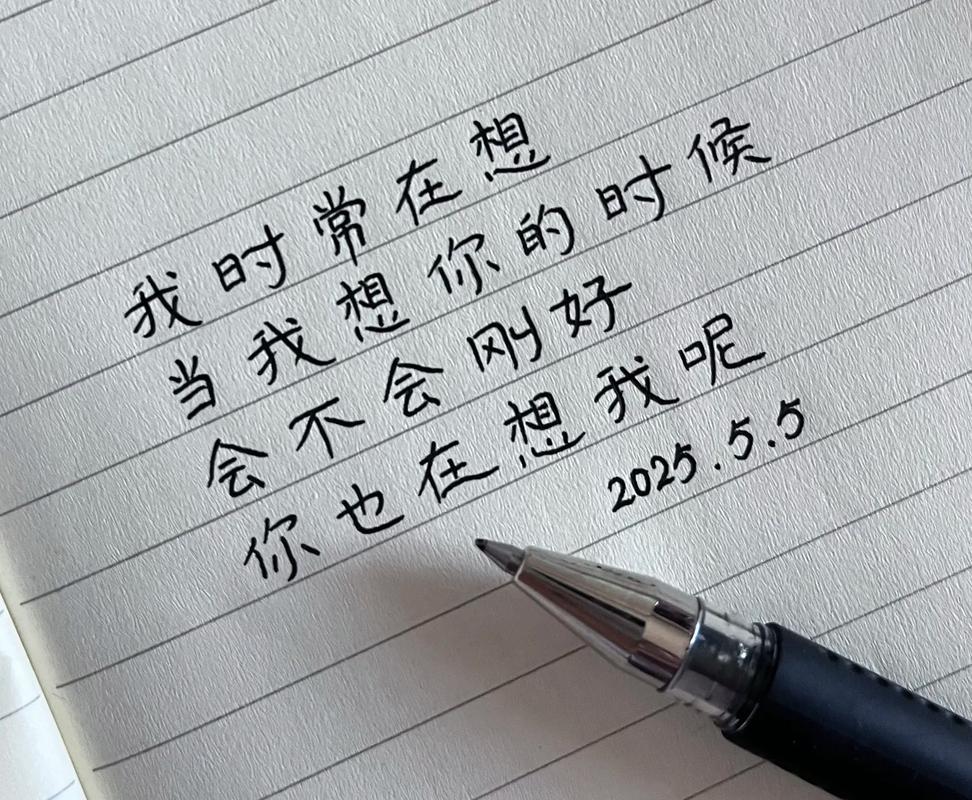 我时常在想
当我想你的时候
会不会刚好
你也在想我呢
2025.5.5